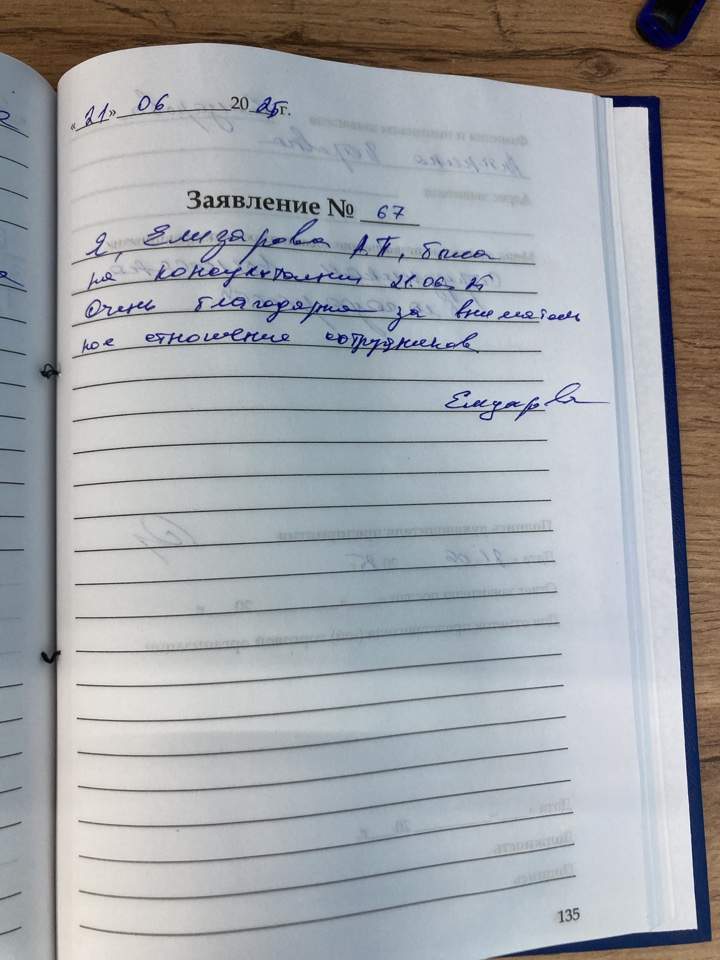 «21» 06 2025 г.
Заявление № 67
Я, Елизарова А.П., была
на консультации 21.06.25
Очень благодарна за вниматель
ное отношение сотрудников
Елизарова
135